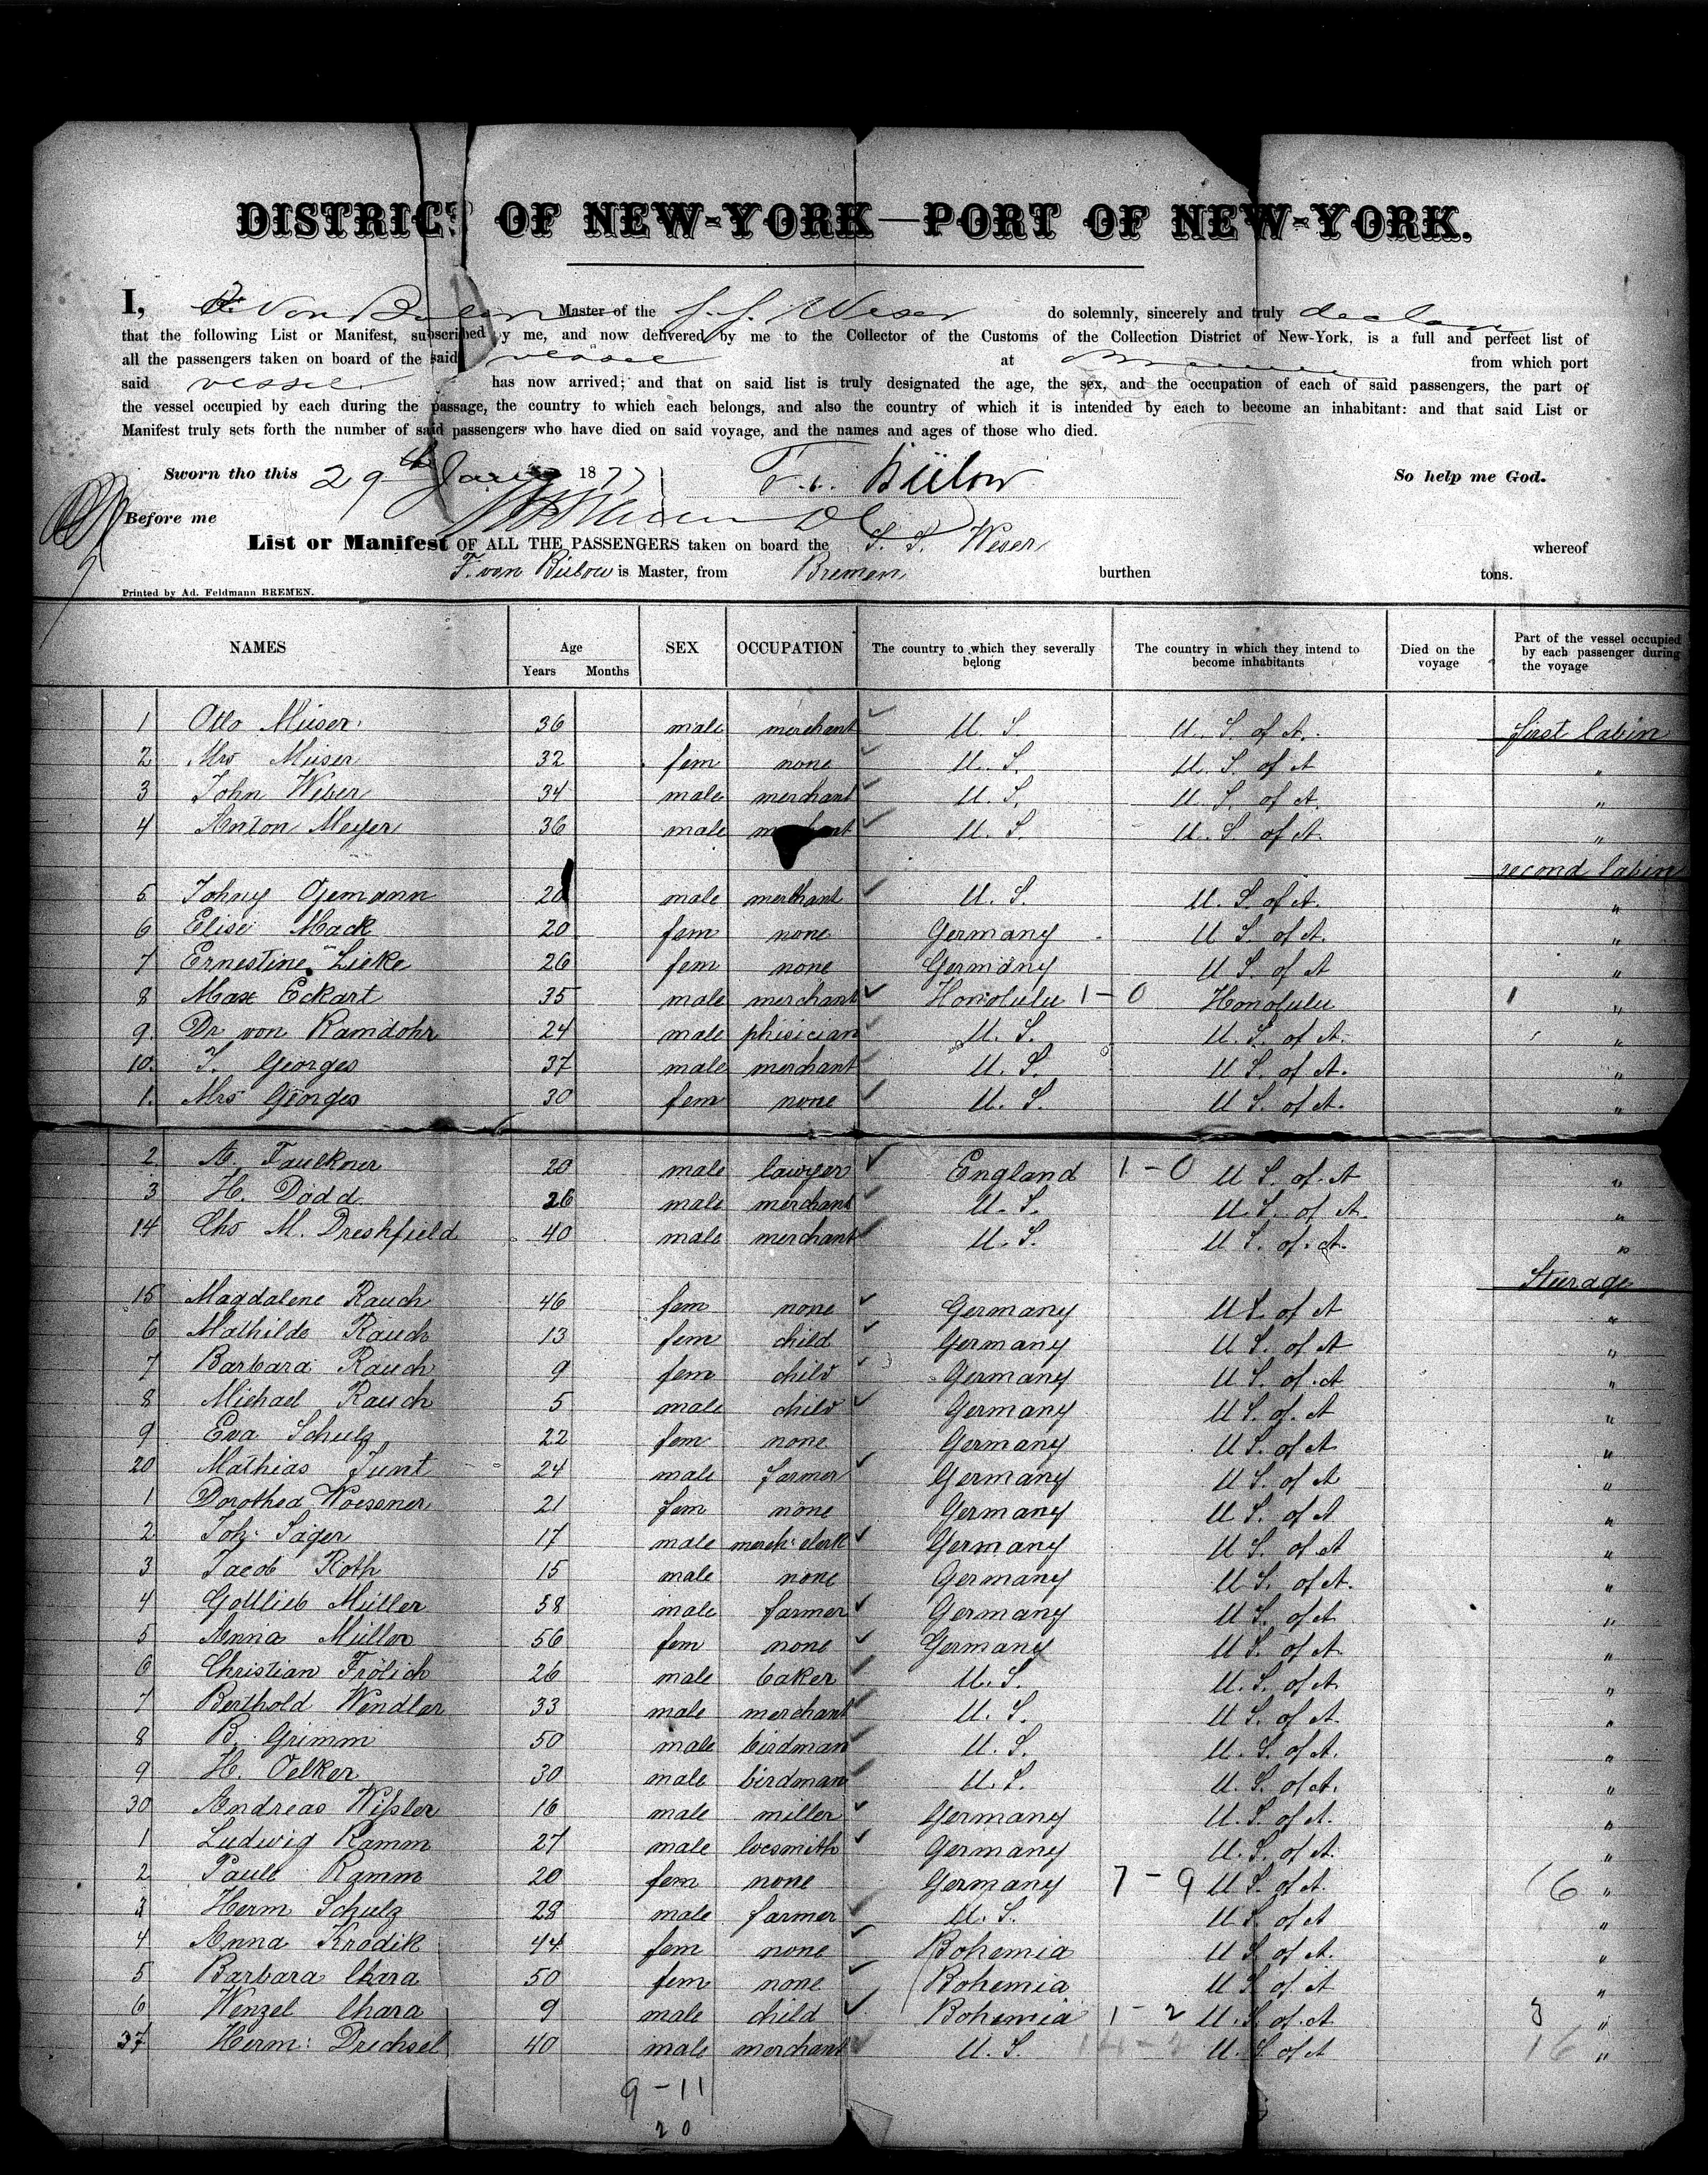 DISTRICT OF NEW-YORK—PORT OF NEW-YORK.
I, F. Von Bulow Master of the S. S. Weser do solemnly, sincerely and truly declare
that the following List or Manifest, subscribed by me, and now delivered by me to the Collector of the Customs of the Collection District of New-York, is a full and perfect list of
all the passengers taken on board of the said vessel at Bremen from which port
said vessel has now arrived; and that on said list is truly designated the age, the sex, and the occupation of each of said passengers, the part of
the vessel occupied by each during the passage, the country to which each belongs, and also the country of which it is intended by each to become an inhabitant: and that said List or
Manifest truly sets forth the number of said passengers who have died on said voyage, and the names and ages of those who died.
Sworn tho this 29th Jany 1877 F. v. Bülow So help me God.
Before me
List or Manifest OF ALL THE PASSENGERS taken on board the S. S. Weser whereof
F. von Bülow is Master, from Bremen burthen tons.
Printed by Ad. Feldmann BREMEN.
NAMES Age Years Months SEX OCCUPATION The country to which they severally belong The country in which they intend to become inhabitants Died on the voyage Part of the vessel occupied by each passenger during the voyage
1 Otto Müser 36 male merchant U. S. U. S. of A. first Cabin
2 Mrs Müser 32 fem none U. S. U. S. of A "
3 John Weber 34 male merchant U. S. U. S. of A. "
4 Anton Meyer 36 male merchant U. S. U. S. of A. "
second Cabin
5 Johny Ogemann 20 male merchant U. S. U. S. of A. "
6 Elise Mack 20 fem none Germany U S. of A. "
7 Ernestine Lieke 26 fem none Germany U S. of A "
8 Max Eckart 35 male merchant Honolulu 1 - 0 Honolulu 1 "
9. Dr von Ramdohr 24 male phisician U. S. U. S. of A. "
10. J. Georges 37 male merchant U. S. U S. of A. "
1. Mrs Georges 30 fem none U. S. U S. of A. "
2 A. Faulkner 20 male lawyer England 1 - 0 U S. of A "
3 H. Dodd 26 male merchant U. S. U. S. of A. "
14 Chs M. Dreshfield 40 male merchant U. S. U S. of A. "
Sturage
15 Magdalene Rauch 46 fem none Germany U S. of A "
6 Mathilde Rauch 13 fem child Germany U S. of A "
7 Barbara Rauch 9 fem child Germany U S. of A "
8 Michael Rauch 5 male child Germany U S. of A "
9 Eva Schulz 22 fem none Germany U S. of A "
20 Mathias Junt 24 male farmer Germany U S. of A "
1 Dorothea Woessner 21 fem none Germany U S. of A "
2 Joh: Säger 17 male merch: clerk Germany U S. of A "
3 Jacob Roth 15 male none Germany U S. of A. "
4 Gottlieb Müller 58 male farmer Germany U S. of A "
5 Anna Müller 56 fem none Germany U S. of A. "
6 Christian Frölich 26 male baker U. S. U. S. of A. "
7 Berthold Wendler 33 male merchant U. S. U S. of A. "
8 B. Grimm 50 male birdman U. S. U. S. of A. "
9 H. Oelker 30 male birdman U. S. U. S. of A. "
30 Andreas Wißler 16 male miller Germany U. S. of A. "
1 Ludwig Ramm 27 male locsmith Germany U. S. of A. "
2 Paule Ramm 20 fem none Germany 7 - 9 U S. of A. 16 "
3 Herm Schulz 28 male farmer U. S. U S. of A "
4 Anna Krodik 44 fem none Bohemia U S. of A. "
5 Barbara Chara 50 fem none Bohemia U S. of A "
6 Wenzel Chara 9 male child Bohemia 1 - 2 U. S. of A 3 "
37 Herm: Drechsel 40 male merchant U. S. 14-2 U. S. of A 16 "
9 - 11
20